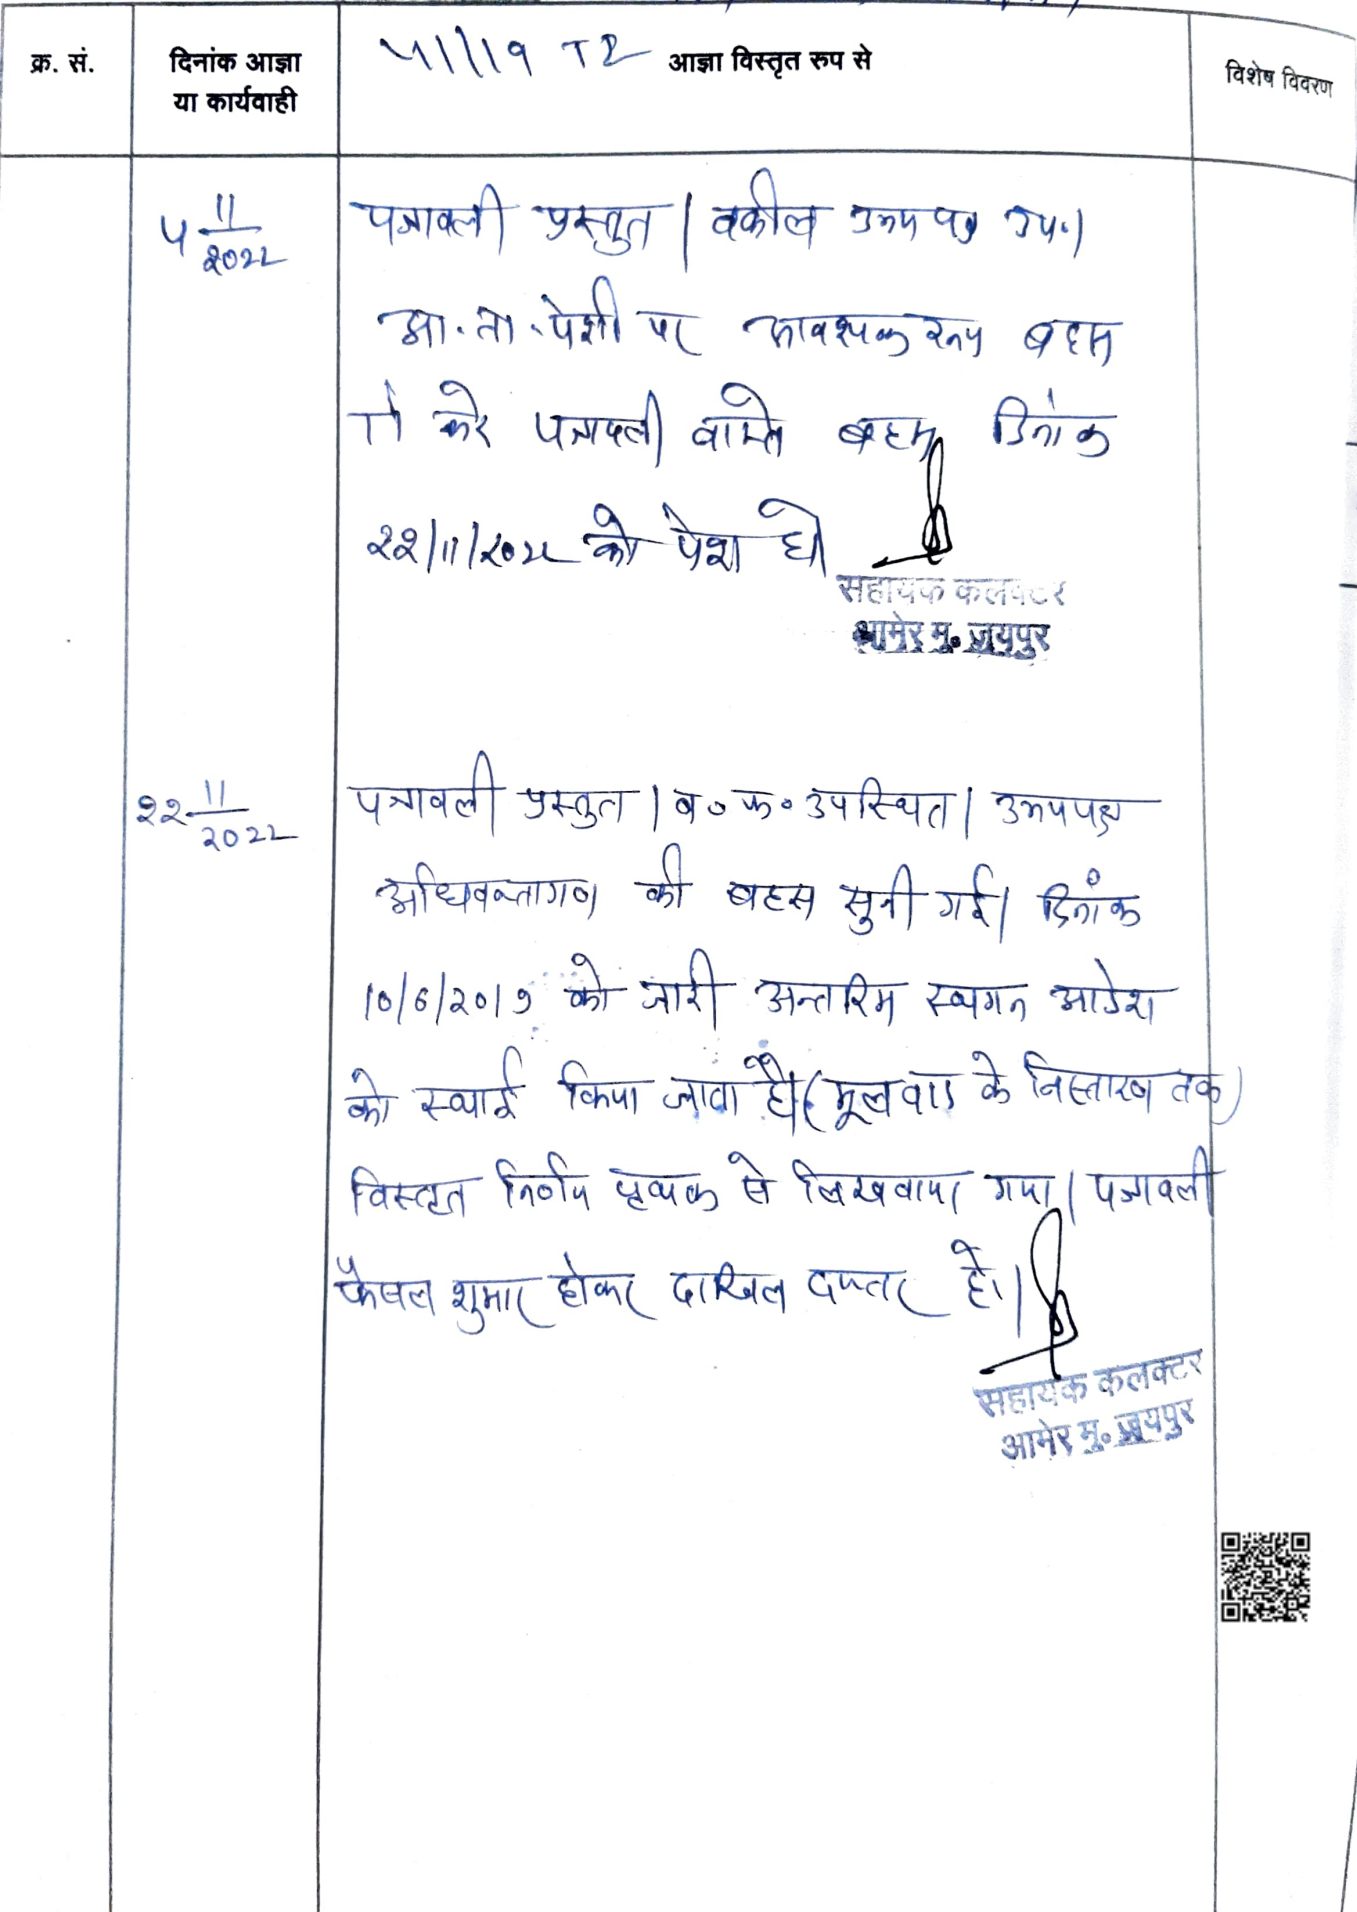 क्र. सं.
दिनांक आज्ञा
या कार्यवाही
आज्ञा विस्तृत रुप से
विशेष विवरण
11
2022
पत्रावली प्रस्तुत | वकील उभय पक्ष उप.|
आ. ता. पेशी पर आवश्यक रूप बहस
करे पत्रावली वास्ते बहस दिनांक
22/11/2022 को पेश हो
सहायक कलक्टर
आमेर मु. जयपुर
22 11
2022
पत्रावली प्रस्तुत | व० फ० उपस्थित | उभयपक्ष
अधिवक्तागण की बहस सुनी गई| दिनांक
10/6/2019 को जारी अन्तरिम स्थगन आदेश
को स्थाई किया जाता है (मूलवाद के निस्तारण तक)
विस्तृत निर्णय पृथक से लिखवाया गया | पत्रावली
फैसल शुमार होकर दाखिल दफ्तर हो।
सहायक कलक्टर
आमेर मु. जयपुर